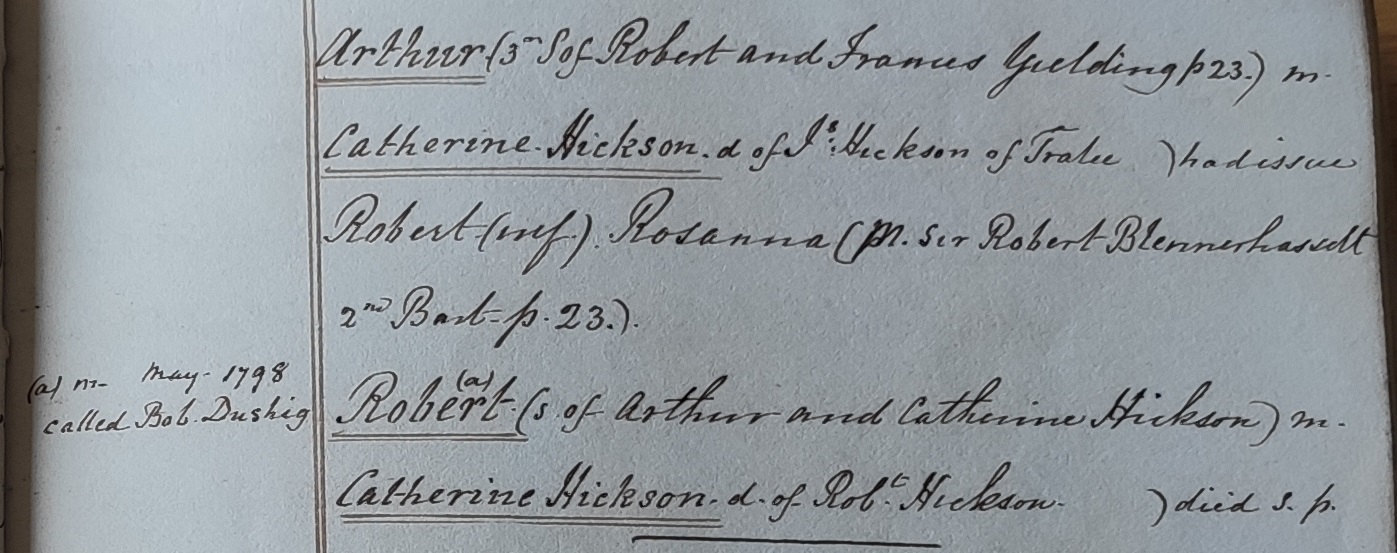 Arthur (3rd S of Robert and Frances Yielding p 23.) m.
Catherine. Hickson. d of Js. Hickson of Tralee ) had issue
Robert (inf). Rosanna (m. Sir Robert Blennerhassett
2nd Bart = p. 23.).
(a) m - May - 1798
called Bob. Dushig
Robert (a). (s. of Arthur and Catherine Hickson) m.
Catherine Hickson. d. of Robt. Hickson. ) died s. p.